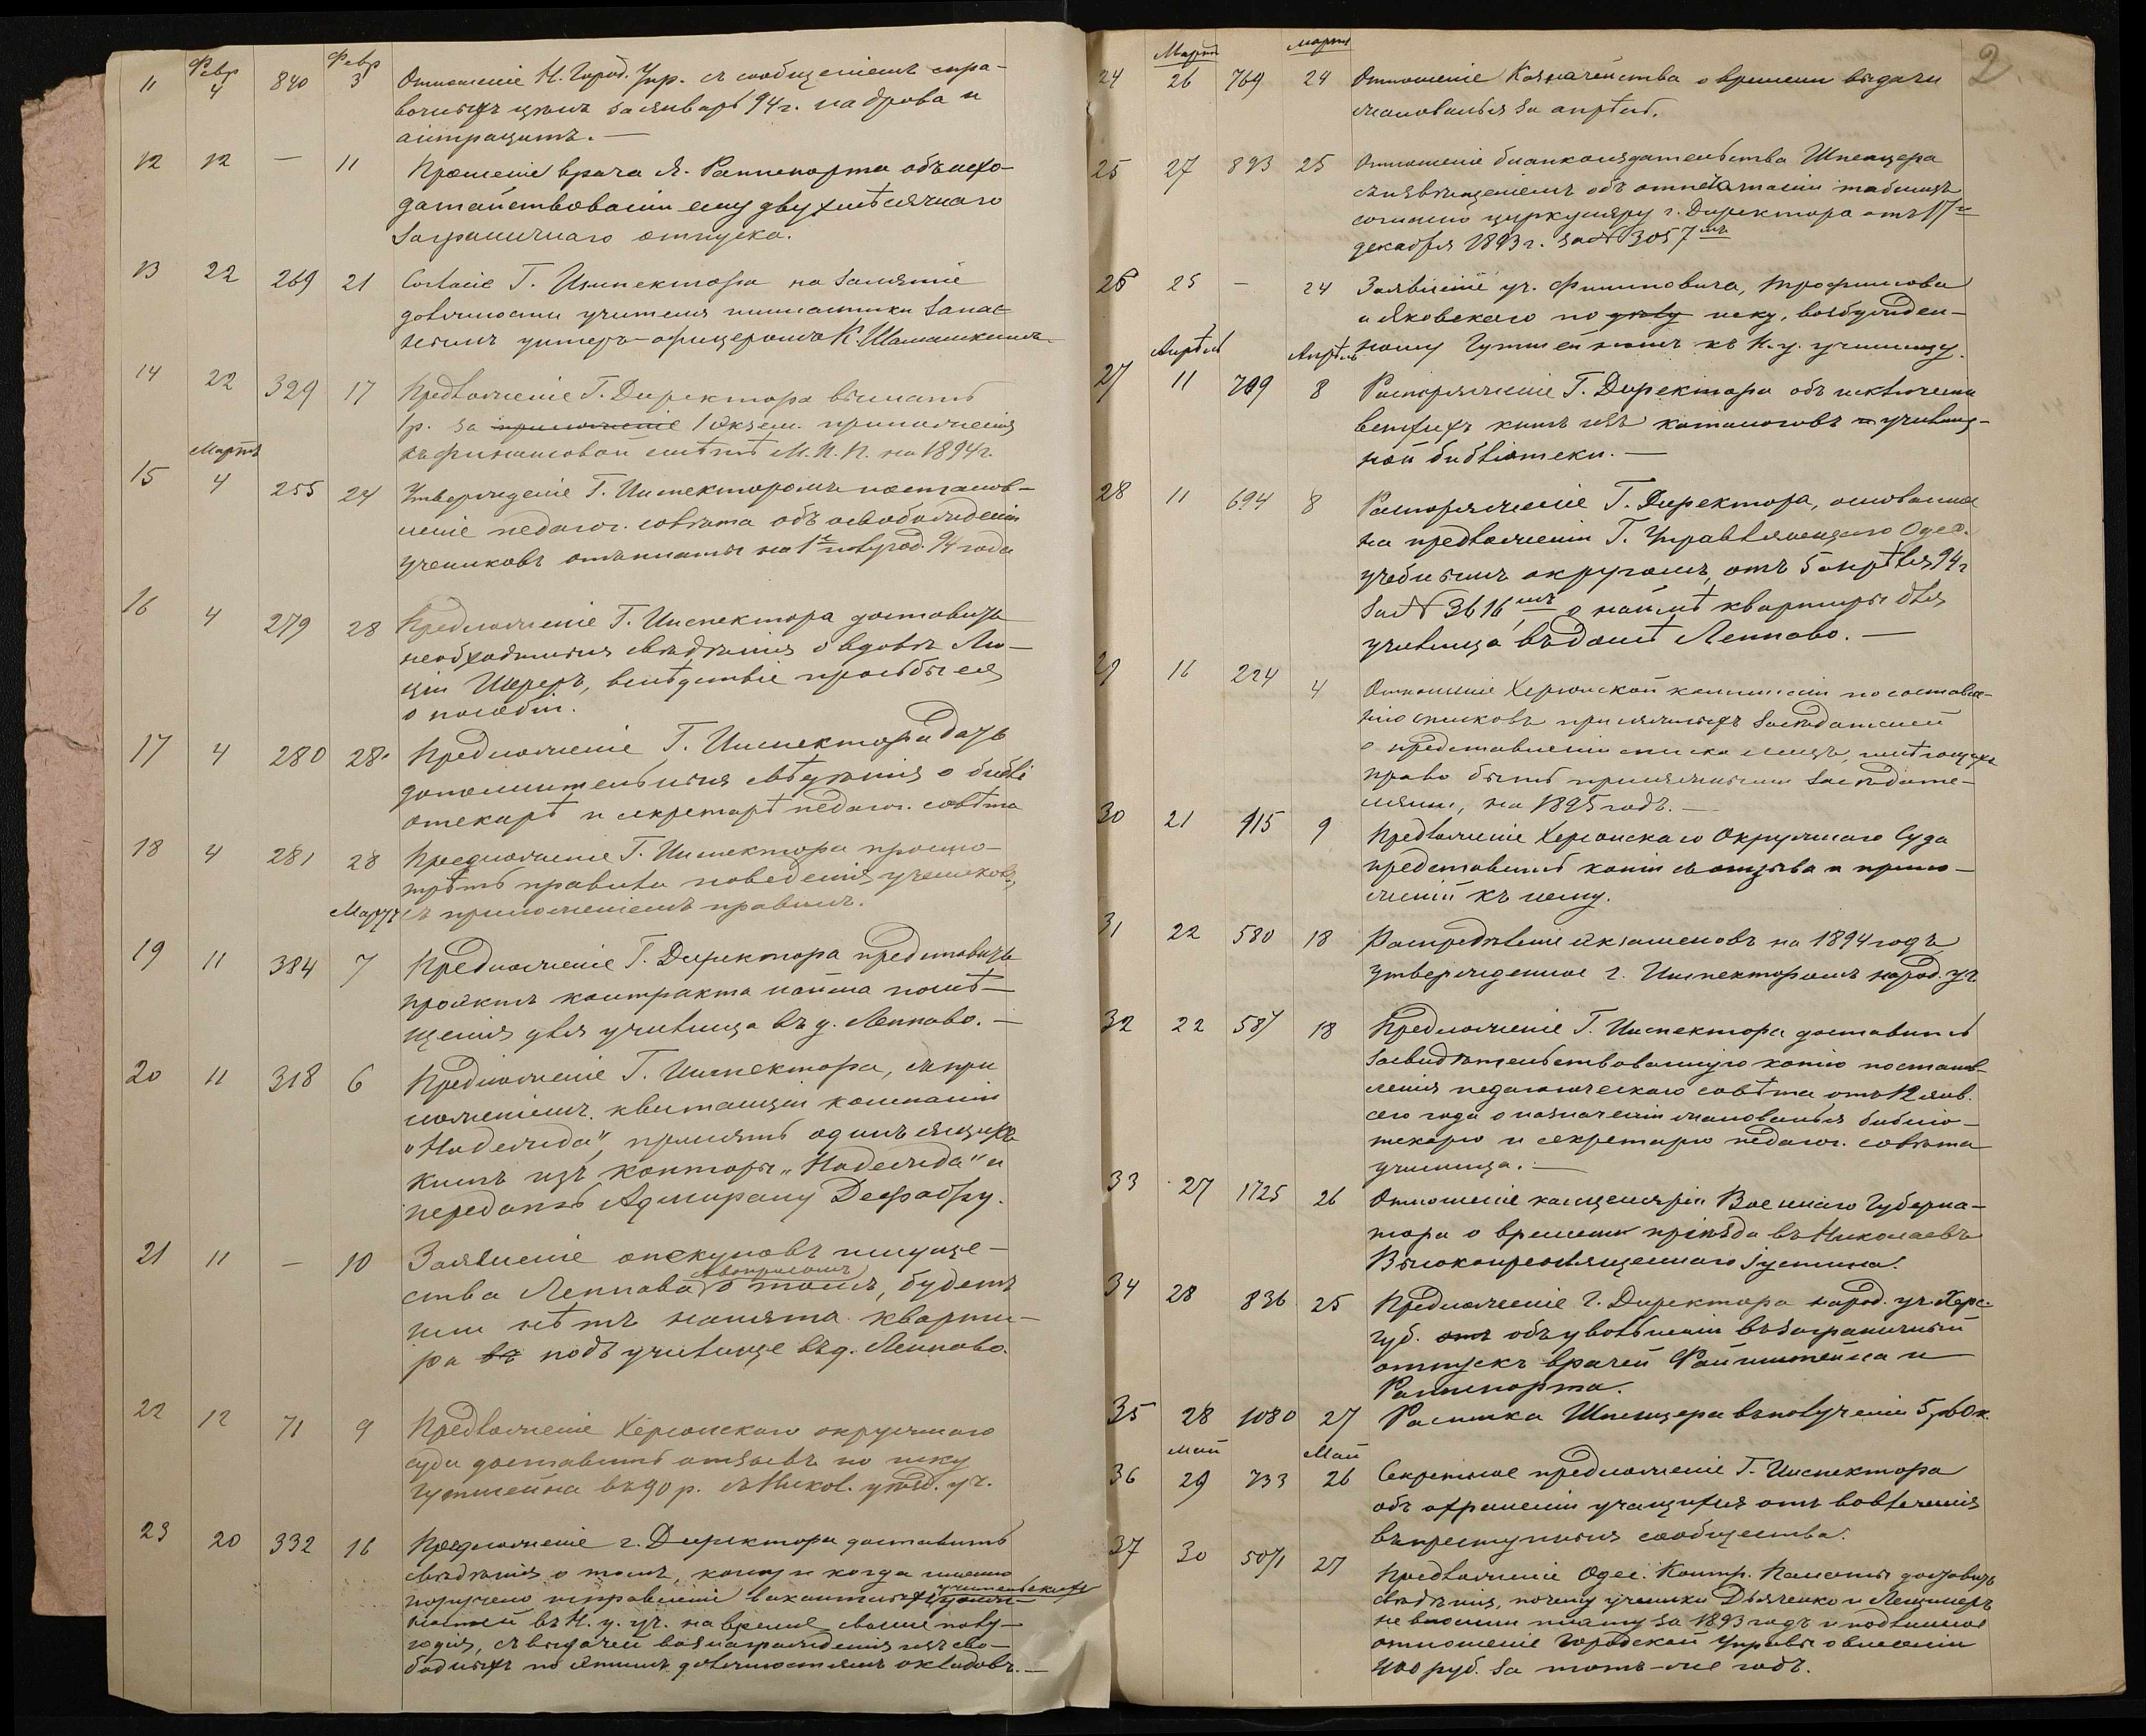 Февр Февр
11 4 840 3 Отношеніе Н. Город. Упр. съ сообщеніемъ спра-
вочныхъ цѣнъ за январь 94 г. на дрова и
антрацитъ. —
12 12 — 11 Прошеніе врача Я. Раппопорта объ исхо-
датайствованіи ему двухмѣсячнаго
заграничнаго отпуска.
13 22 269 21 Согласіе Г. Инспектора на занятіе
должности учителя гимнастики запас-
нымъ унтеръ-офицеромъ К. Шаталкинымъ
14 22 329 17 Предложеніе Г. Директора выслать
1 р. за приложеніе 1 экзем. приложенія
къ финансовой смѣтѣ М. Н. П. на 1894 г.
Мартъ
15 4 255 24 Утвержденіе Г. Инспекторомъ постанов-
леніе педагог. совѣта объ освобожденіи
учениковъ отъ платы на 1е полугод. 94 года
16 4 279 28 Предложеніе Г. Инспектора доставить
необходимыя свѣдѣнія о вдовѣ Лю-
ціи Шереръ, вслѣдствіе просьбы ея
о пособіи.
17 4 280 28. Предложеніе Г. Инспектора дать
дополнительныя свѣдѣнія о библі
отекарѣ и секретарѣ педагог. совѣта
18 4 281 28 Предложеніе Г. Инспектора просмо-
трѣть правила поведенія учениковъ,
Мартъ съ приложеніемъ правилъ.
19 11 384 7 Предложеніе Г. Директора представить
проэктъ контракта найма помѣ-
щенія для училища въ д. Леппово. —
20 11 318 6 Предложеніе Г. Инспектора, съ при
ложеніемъ квитанціи компаніи
"Надежда", принять одинъ ящикъ
книгъ изъ конторы "Надежда" и
передать Адмиралу Дефабру.
21 11 — 10 Заявленіе опекуновъ имуще-
ства Леппова съ вопросомъ о томъ, будетъ
или нѣтъ нанята кварти-
ра въ подъ училище въ д. Леппово.
22 12 71 9 Предложеніе Херсонскаго окружнаго
суда доставить отзывъ по иску
Гутшейна въ 90 р. съ Никол. уѣзд. уч.
23 20 332 16 Предложеніе г. Директора доставить
свѣдѣнія о томъ, кому и когда именно
поручено исправленіе вакантныхъ учительскихъ долж-
ностей въ Н. у. уч. на время свыше полу-
годія, съ выдачей вознагражденія изъ сво-
бодныхъ по этимъ должностямъ окладовъ. —
2
Мартъ марта
24 26 769 24 Отношеніе Казначейства о времени выдачи
жалованья за апрѣль.
25 27 893 25 Отношеніе бланкоиздательства Шпенцера
съ извѣщеніемъ объ отпечатаніи таблицъ
согласно циркуляру г. Директора отъ 17го
декабря 1893 г. за № 3057мъ
26 25 — 24 Заявленіе уч. Филиповича, Трофимова
и Яковскаго по дѣлу иску, возбужден-
ному Гутшейномъ къ Н. у. училищу.
Апрѣль Апрѣль
27 11 799 8 Распоряженіе Г. Директора объ исключеніи
ветхихъ книгъ изъ каталоговъ училищ-
ной библіотеки. —
28 11 694 8 Распоряженіе Г. Директора, основанное
на предложеніи Г. Управляющаго Одес.
учебнымъ округомъ, отъ 5 апрѣля 94 г
за № 3616мъ, о наймѣ квартиры для
училища въ домѣ Леппово. —
29 16 224 4 Отношеніе Херсонской коммисіи по составле-
нію списковъ присяжныхъ засѣдателей
о представленіи списка лицъ, имѣющихъ
право быть присяжными засѣдате-
лями, на 1895 годъ. —
30 21 915 9 Предложеніе Херсонскаго Окружнаго Суда
представить копіи съ отзыва и прило-
женій къ нему.
31 22 580 18 Распредѣленіе экзаменовъ на 1894 годъ
утвержденное г. Инспекторомъ народ. уч.
32 22 587 18 Предложеніе Г. Инспектора доставить
засвидѣтельствованную копію постанов-
ленія педагогическаго совѣта отъ 12 янв.
сего года о назначеніи жалованья библіо-
текарю и секретарю педагог. совѣта
училища. —
33 27 1725 26 Отношеніе канцеляріи Военнаго Губерна-
тора о времени пріѣзда въ Николаевъ
Высокопреосвященнаго Іустина.
34 28 836 25 Предложеніе Г. Директора народ. уч. Херс.
губ. отъ объ увольненіи въ заграничный
отпускъ врачей Файнштейна и
Раппопорта.
35 28 1080 27 Росписка Шпенцера въ полученіи 5 р. 60 к.
Май Май
36 29 733 26 Секретное предложеніе Г. Инспектора
объ охраненіи учащихся отъ вовлеченія
въ преступныя сообщества.
37 30 5071 27 Предложеніе Одес. Контр. Палаты доставить
свѣдѣнія, почему ученики Дьяченко и Лецингеръ
не внесли платы за 1893 годъ и подлинное
отношеніе Городской Управы о внесеніи
400 руб. за тотъ-же годъ.